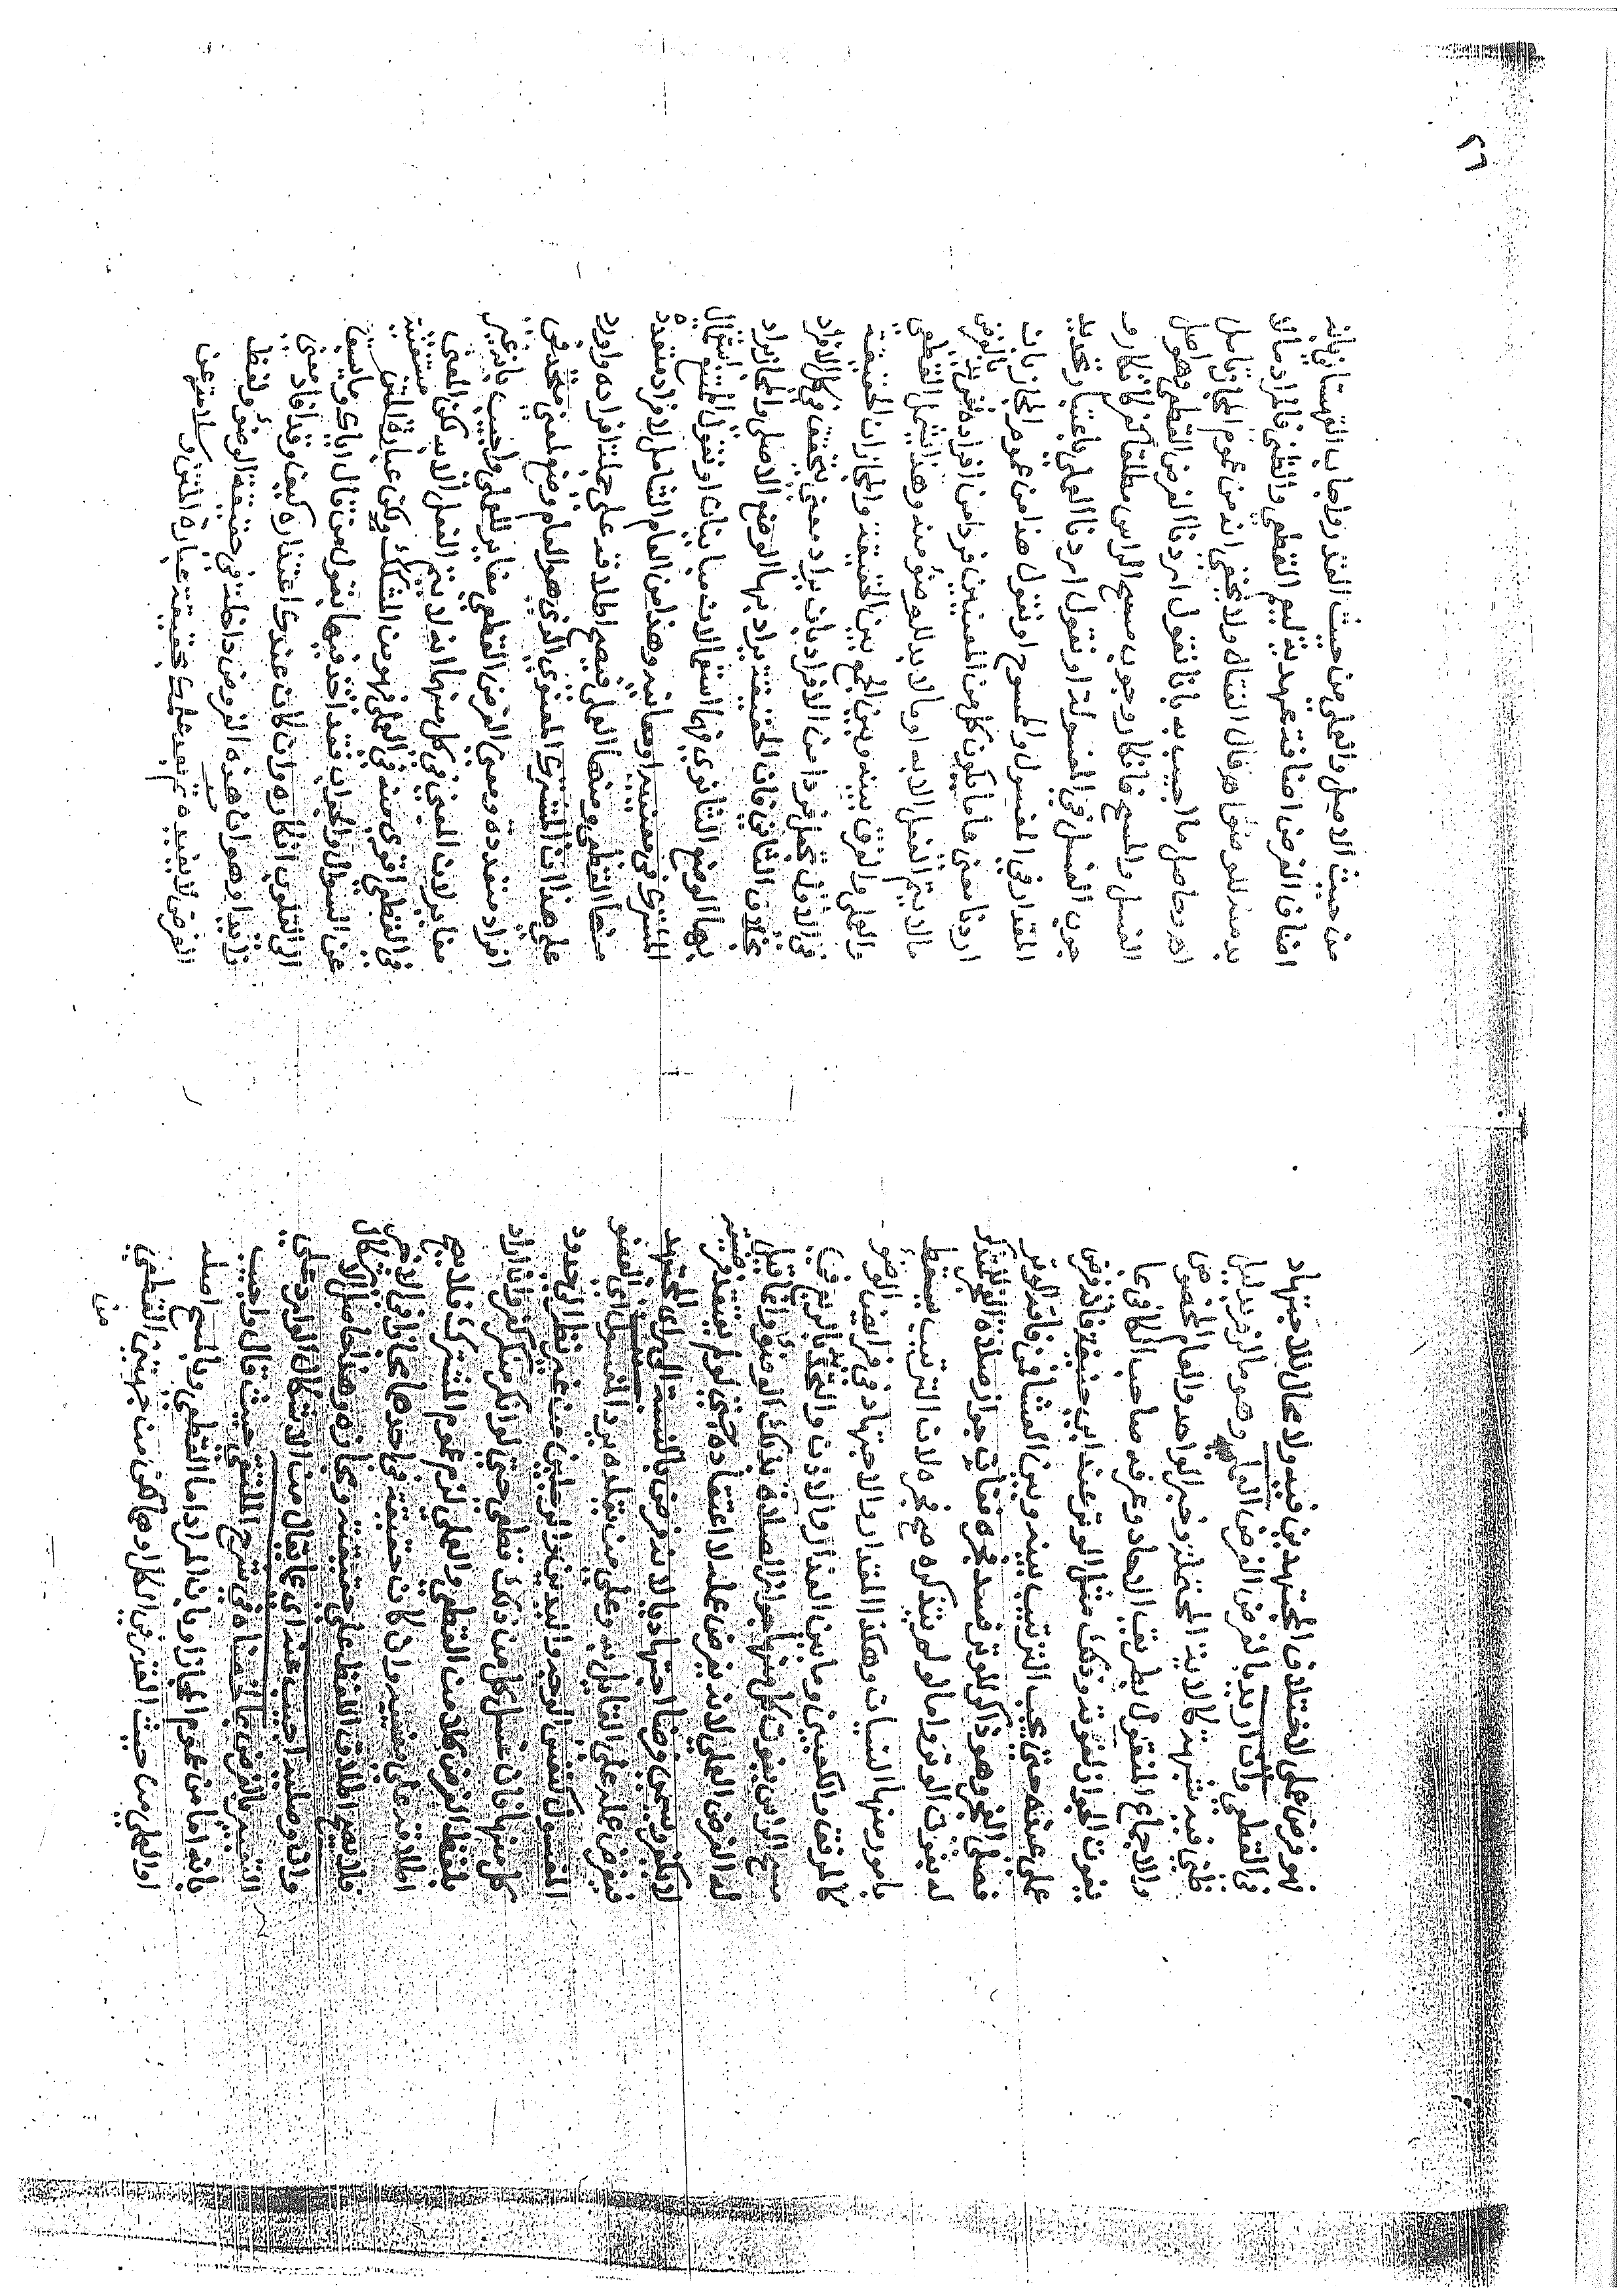 فهو فرض على لاختلاف المجتهدين فيه ولا مجال للاجتهاد
في القطعي وان اريد بالفرض الفرض العملي وهو ما لزم بدليل
ظني فيه شبهة كالاية المحتملة وخبر الواحد والعام المخصوص
والاجماع المنقول بطريق الاحاد وعرفه صاحب الكافي بما
يفوت الجواز لفوته وذلك مثل الوتر عند ابي حنيفة فانه فرض
على عنده حتى يجب الترتيب بينه وبين العشا فمن فاته الوتر
فصلى الفجر وهو ذاكر للوتر فسد فجره ففات جواز صلاة الفجر للتذكر
له بفوت الوتر واما لو لم يتذكره صح فجره لان الترتيب يسقط
بامور منها النسيان وهكذا المقدار والاجتهاد في فرايض الوضوء
كالمرفق والكعبين وما بين العذار والاذن والتحديد بالربع في
مسح الراس يفوت كل منها جواز الصلاة بذلك الوضوء وانما قيل
له الفرض العملي لانه يفرض عمله لا اعتقاده حتى لو لم يعتقد فرضيته
لا يكفر ويسمى فرضا اجتهاديا لانه فرض بالنسبة الى راي المجتهد
فيفرض عمله على القايل به وعلى من يقلده يرد المغسول اي العضو
المغسول كنفس الوجه واليدين والرجلين من غير نظر الى حدود
كل منها فان غسل كل من ذلك قطعي حتى لو انكره منكر كفر وان اراد
بلفظ الفرض كلا من القطعي والعملي لزم عموم المشترك فلا يصح
اطلاقه على معنييه وان كان حقيقة في احدهما مجازا في الاخر
فلا يصح اطلاق اللفظ على حقيقته ومجازه وهذا حاصل الاشكال
وانه وصلية اجيب عنه اي عما يقال من الاشكال الوارد على
التعبير بالفرض بما لخصناه في شرح الملتقى حيث قال واجيب
بانه اما من عموم المجاز او بان المراد اما القطعي وبالمسح اصله
او العملي من حيث القدر في الكل او هما لكن من جهتين القطعي
من
٢٦
من حيث الاصل والعملي من حيث القدر واجاب القهستاني بانه
اضاف الفرض اضافة عهدية ليعم القطعي والظني فالمراد ما لا
بد منه للوضوء قال انتهى ولا يخفى انه من عموم المجاز تامل
اه وحاصل ما اجيب به بانا نقول اردنا الفرض القطعي وهو اصل
الغسل والمسح فانكار وجوب مسح الراس مطلقا كفر كانكار و
جوب الغسل في المغسولة او نقول اردنا العملي باعتبار تحديد
المقدار في المغسول والممسوح او نقول هذا من عموم المجاز بان
اردنا معنى عاما يكون كل من المعنيين فردا من افراده فنريد بالفرض
ما لا يتم الفعل الا به او ما لا بد للوضوء منه وهذا يشمل القطعي
والعملي والفرق بينه وبين الجمع بين الحقيقة والمجاز ان الحقيقة
في الاول تجعل فردا من الافراد بان يراد معنى يتحقق في كل الافراد
بخلاف الثاني فان الحقيقة يراد بها الوضع الاصلي والمجاز يراد
بها الوضع الثانوي فهما استعمالان متباينان او نقول الممتنع استعمال
المشترك في معنييه او معانيه وهذا من العام الشامل لافراد متعددة
منها القطعي ومنها العملي فيصح اطلاقه على جملة افراده واورد
على هذا ان المشترك المعنوي الذي هو العام وضع لمعنى متحد في
افراد متعددة ومعنى الفرض القطعي مغاير للعملي واجيب بانه غير
مغاير لان المعنى في كل منهما انه لا يتم الفعل الا به لكن المعنى
في القطعي اقوى منه في العملي فهو من المشكك ولكن عبارة المتن مستغنية
عن السؤال والجواب فقد اخذ فيها بقول من قال اياك وما يسبق
الى القلوب انكاره وان كان عندك اعتذاره كيف وقد افاد معنى
زايدا وهو ان هذه الفروض داخلة في حقيقة الوضوء ولفظ
الفرض لا يفيده ثم بعد علمك بحقيقة عبارة المتن وسلامتها عن